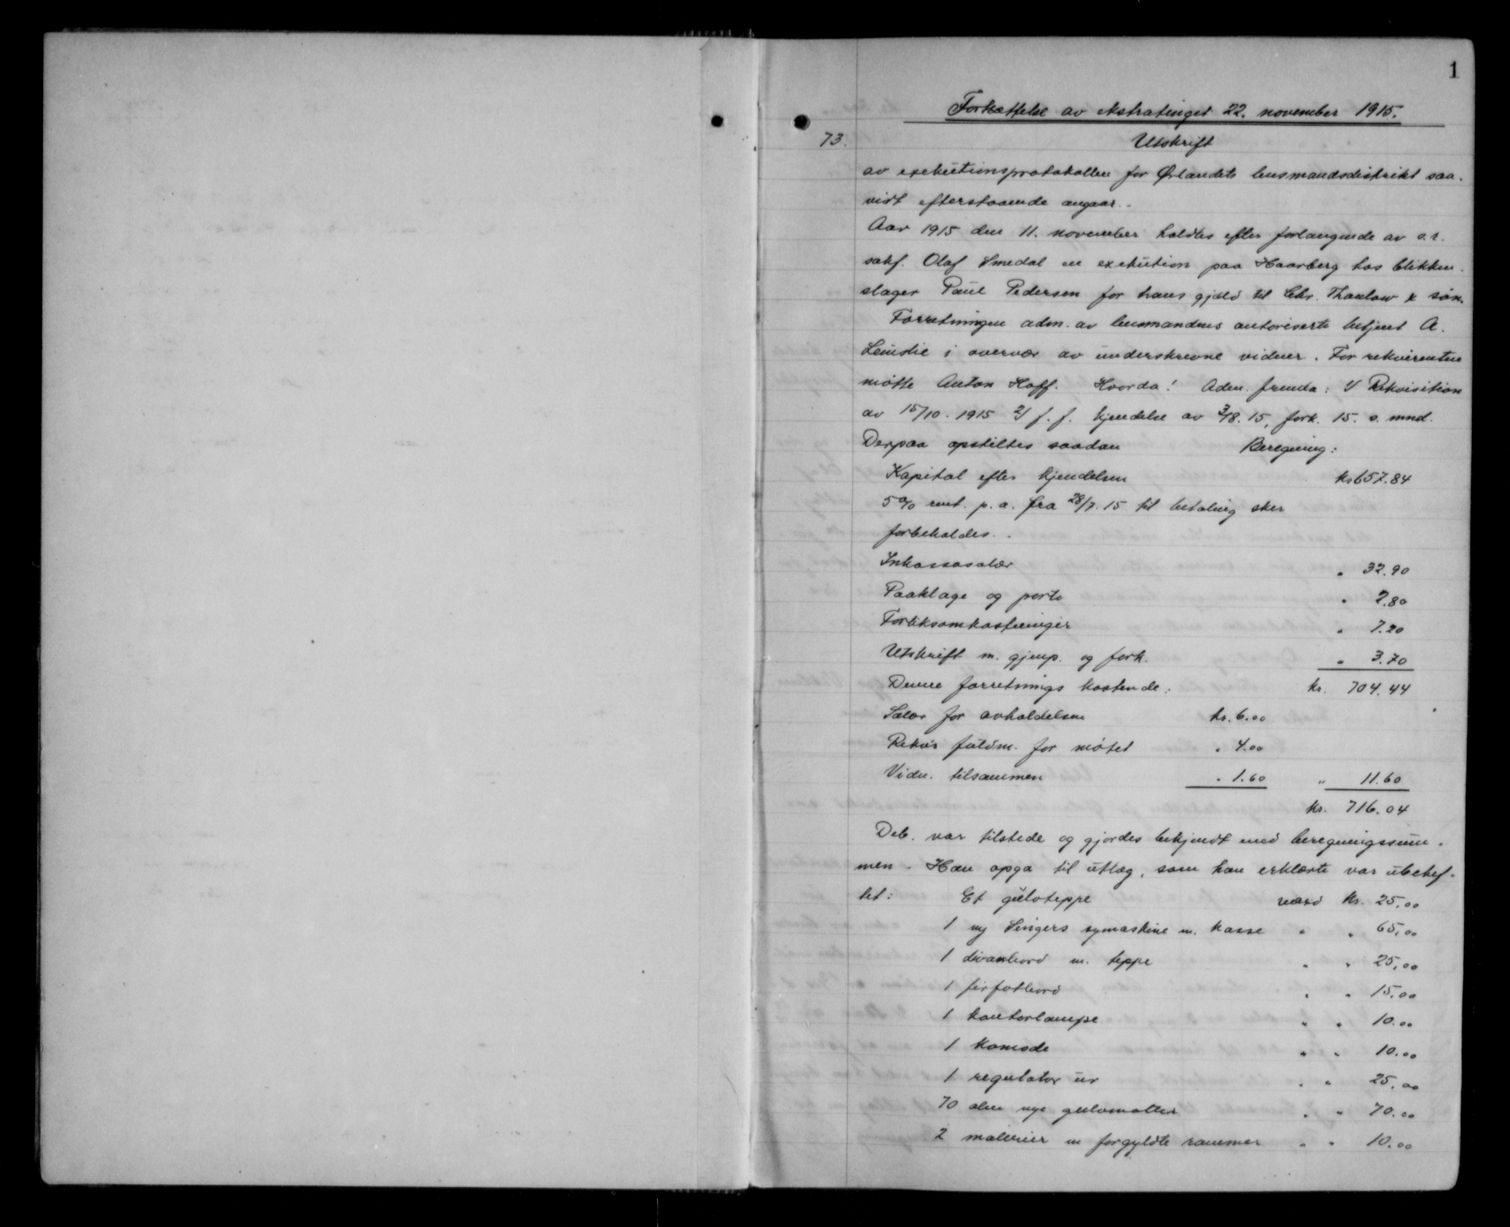 1
Fortsættelse av ekstratinget 22. november 1915.
73. Utskrift
av exekutionsprotokollen for Ørlandets lensmandsdistrikt saa-
vidt efterstaaende angaar.
Aar 1915 den 11. november holdtes efter forlangende av o.r.
sakf. Olaf Smedal en exekution paa Haarberg hos blikken-
slager Paul Pedersen for hans gjæld til Chr. Thaulow & søn.
Forretningen adm. av lensmandens autoriserte betjent A.
i overvær av underskrevne vidner. For rekvirenten
møtte Anton Hoff. Hvorda! Adm. fremla: 1/ Rekvisition
av 15/10. 1915 2/ f. f. kjendelse av 3/8. 15, fork. 15. s. mnd.
Derpaa opstilles saadan Beregning:
Kapital efter kjendelsen kr. 657.84
5 % rent. p. a. fra 28/7. 15 til betaling sker
forbeholdes.
Inkassosalær " 32.90
Paaklage og porto " 2.80
Forliksomkostninger " 7.20
Utskrift m. gjenp. og fork. " 3.70
Denne forretnings kostende: kr. 704.44
Salær for avholdelsen kr. 6.00
Rekv.s fuldm. for møtet " 4.00
Vidn. tilsammen " 1.60 " 11.60
kr. 716.04
Deb. var tilstede og gjordes bekjendt med beregningssum-
men. Han opga til utlæg, som han erklærte var ubehef-
tet: Et gulvteppe værd kr. 25,00
1 ny Singers symaskine m. kasse " " 65,00
1 divanbord m. teppe " " 25,00
1 firfotbord " " 15,00
1 kontorlampe " " 10.00
1 komode " " 10.00
1 regulator ur " " 25,00
70 alen nye gulvmatter " " 70.00
2 malerier m forgyldte rammer " " 10.00